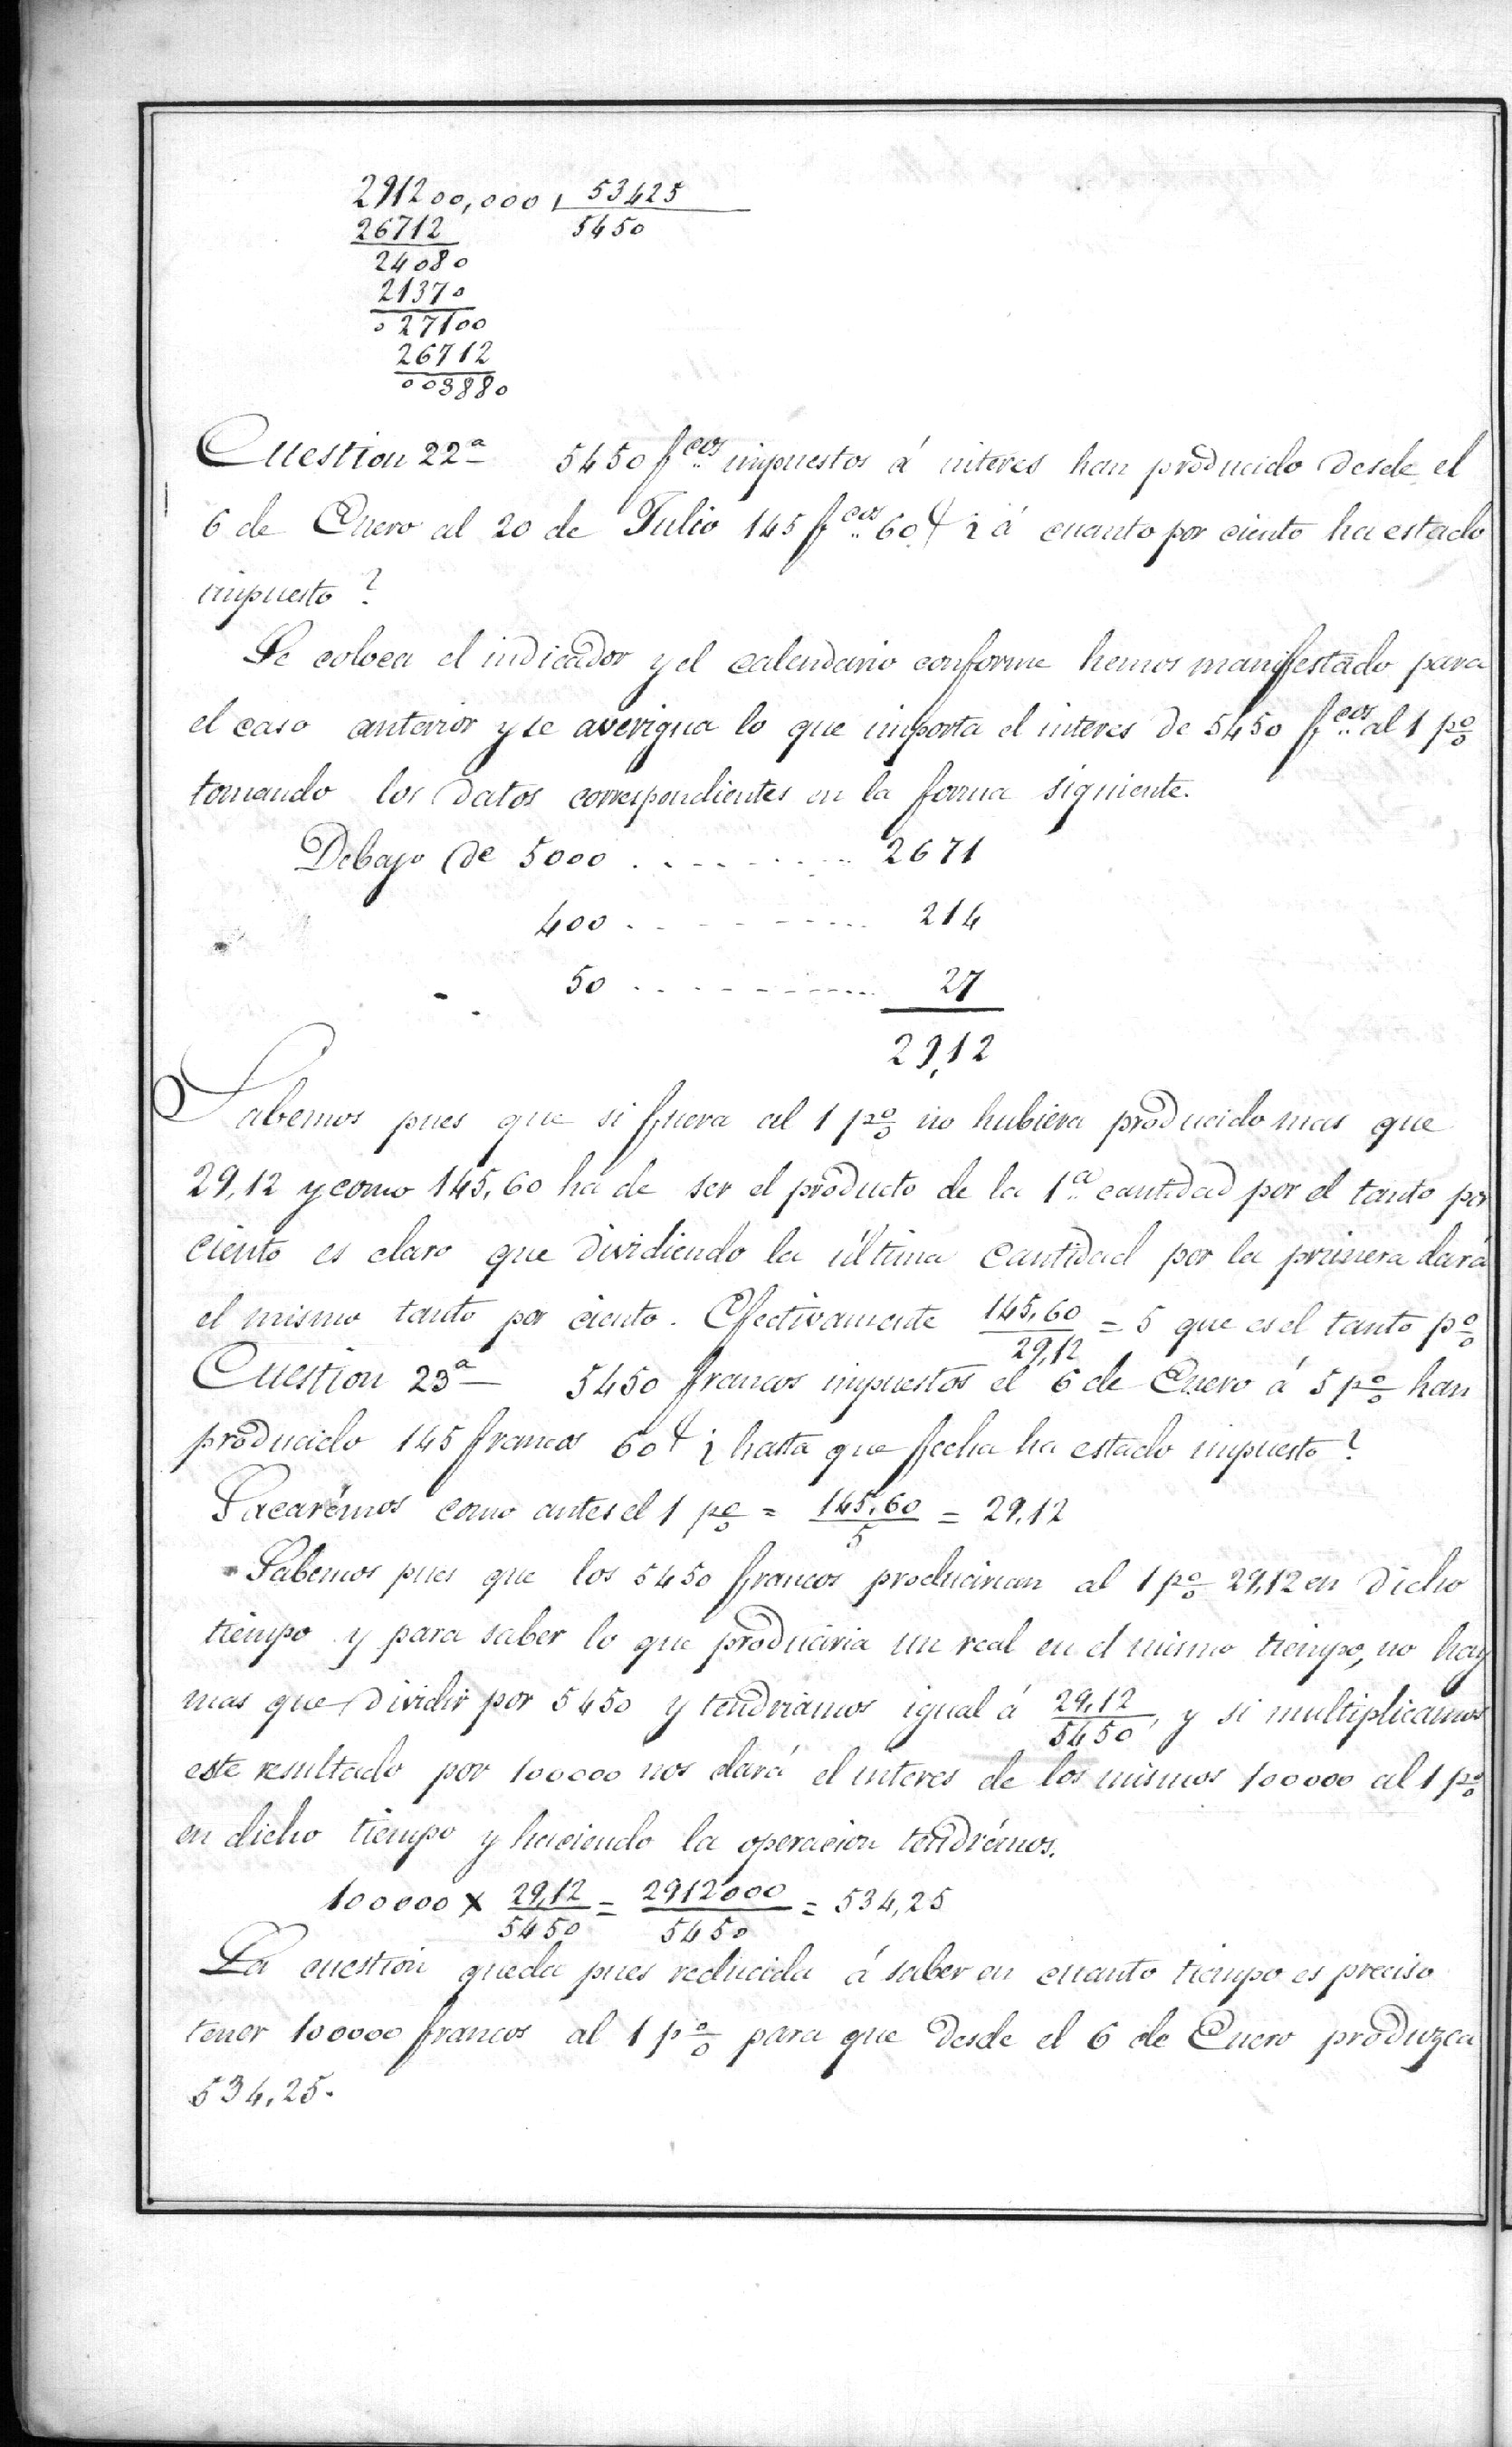 291200,000 | 53425
26712 5450
24080
21370
027100
26712
003880
Cuestion 22ª 5450 fcos impuestos á interes han producido desde el
6 de Enero al 20 de Julio 145 fcos 60 ¿ á cuanto por ciento ha estado
impuesto?
Se coloca el indicador y el calendario conforme hemos manifestado para
el caso anterior y se averigua lo que importa el interes de 5450 fcos al 1 p%
tomando los datos correspondientes en la forma siguiente.
Debajo de 5000 . . . . . . . . . 2671
400 . . . . . . . . . 214
50 . . . . . . . . . 27
29,12
Sabemos pues que si fuera al 1 p% no hubiera producido mas que
29,12 y como 145,60 ha de ser el producto de la 1ª cantidad por el tanto por
ciento es claro que dividiendo la última cantidad por la primera dará
el mismo tanto por ciento. Efectivamente 145,60/29,12 = 5 que es el tanto p%
Cuestion 23ª 5450 francos impuestos el 6 de Enero á 5 p% han
producido 145 francos 60 ¿ hasta que fecha ha estado impuesto?
Sacarémos como antes el 1 p% = 145,60/5 = 29,12
Sabemos pues que los 5450 francos producirian al 1 p% 29,12 en dicho
tiempo y para saber lo que produciria un real en el mismo tiempo, no hay
mas que dividir por 5450 y tendriamos igual á 29,12/5450, y si multiplicamos
este resultado por 100000 nos dará el interes de los mismos 100000 al 1 p%
en dicho tiempo y haciendo la operacion tendrémos.
100000 x 29,12/5450 = 2912000/5450 = 534,25
La cuestion queda pues reducida á saber en cuanto tiempo es preciso
tener 100000 francos al 1 p% para que desde el 6 de Enero produzca
534,25.